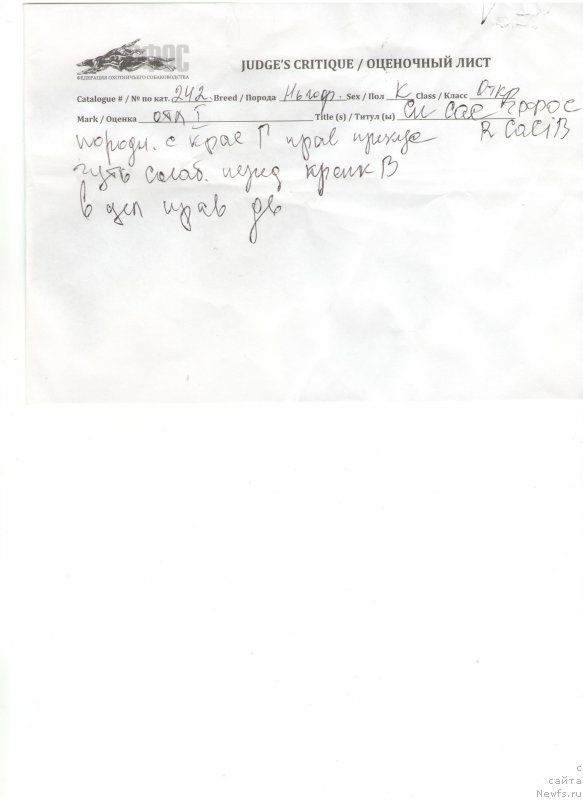 ФОС
ФЕДЕРАЦИЯ ОХОТНИЧЬЕГО СОБАКОВОДСТВА
JUDGE'S CRITIQUE / ОЦЕНОЧНЫЙ ЛИСТ
Catalogue # / № по кат. 242. Breed / Порода Ньюф. Sex / Пол К Class / Класс Откр
Mark / Оценка отл I Title (s) / Титул (ы) CW CAC ЧРФОС
R CACIB
породн. с крас Г прав прикус
чуть слаб. перед крепк В
в дв прав дв
с
сайта
Newfs.ru